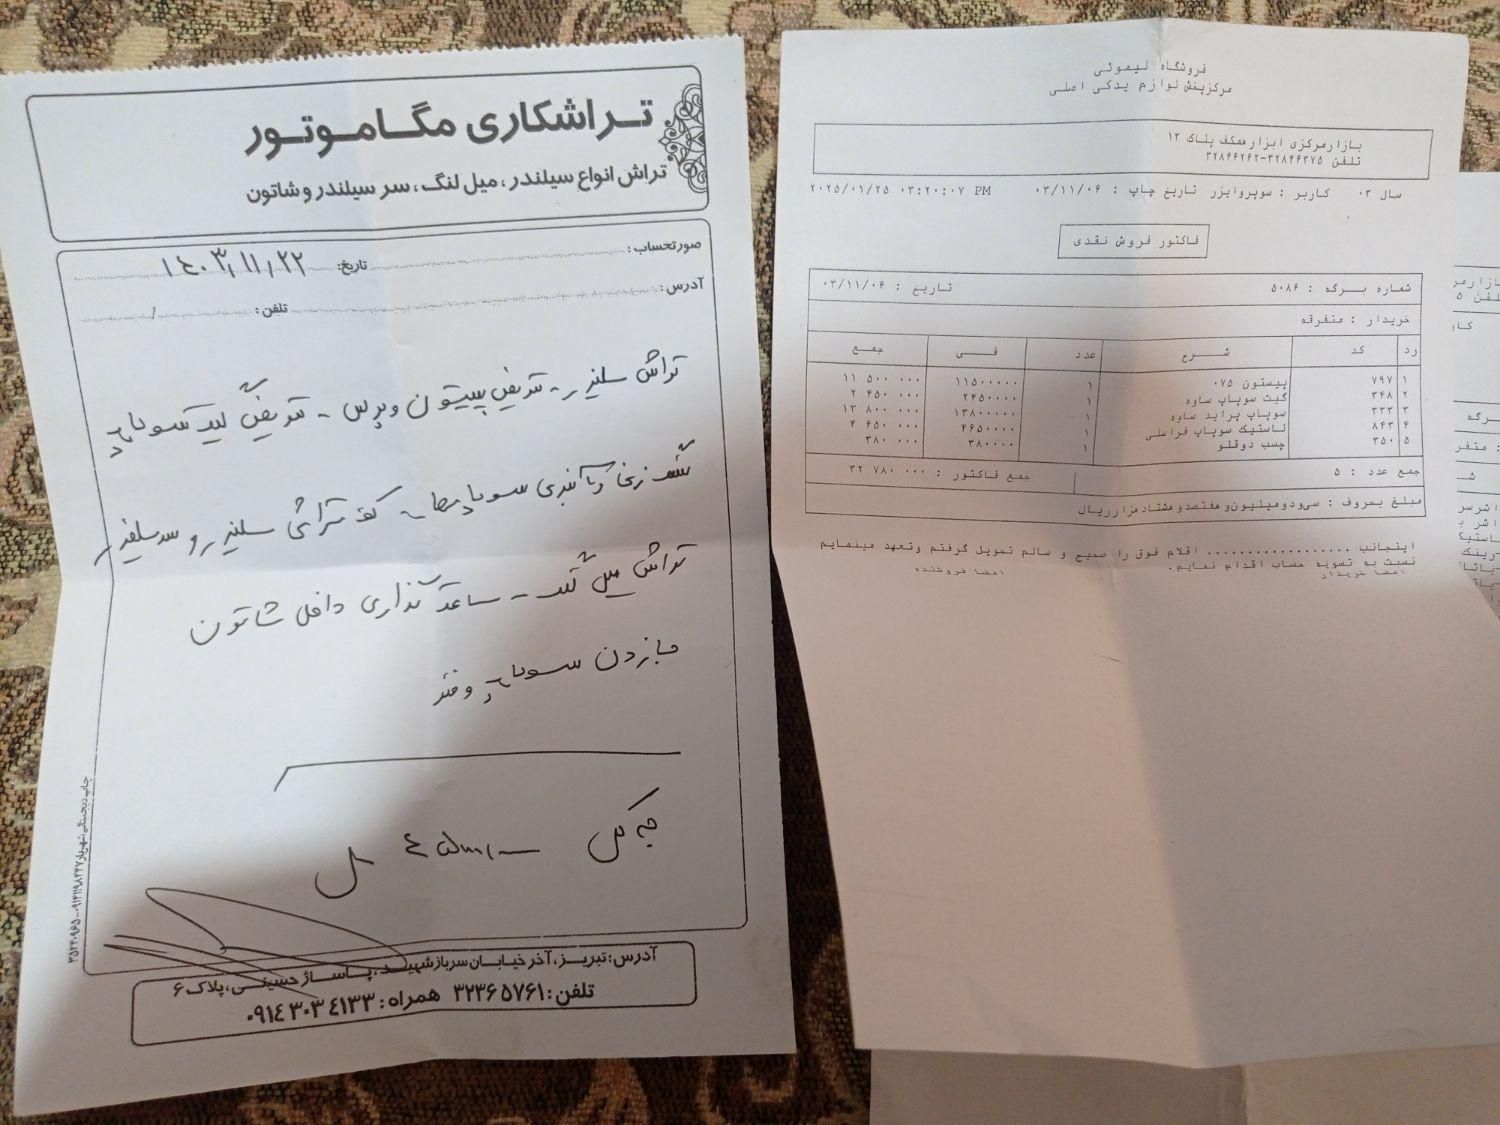 تراشکاری مگاموتور
تراش انواع سیلندر، میل لنگ، سر سیلندر و شاتون
صورتحساب: تاریخ: ۱۴۰۳/۱۱/۲۲
آدرس: تلفن: /
تراش سلندر - تعویض پیستون و پرس - تعویض گیت سوپاپ
کف تراشی سلندر و سرسلندر
تراش میل لنگ - ساعت گذاری داخل شاتون
جازدن سوپاپ و فنر
آدرس: تبریز، آخر خیابان سرباز شهید، پاساژ حسینی، پلاک ۶
تلفن: ۳۲۳۶۵۷۶۱ همراه: ۰۹۱۴۳۰۳۴۱۳۳
فروشگاه لیموئی
مرکزپخش لوازم یدکی اصلی
بازارمرکزی ابزار همکف پلاک ۱۳
تلفن ۳۲۸۴۶۳۷۵-۳۲۸۴۶۲۶۲
سال ۰۳ کاربر : سوپروایزر تاریخ چاپ : ۰۳/۱۱/۰۶ ۲۰۲۵/۰۱/۲۵ ۰۳:۲۰:۰۷ PM
فاکتور فروش نقدی
شماره برگه : ۵۰۸۶ تاریخ : ۰۳/۱۱/۰۶
خریدار : متفرقه
رد کد شرح عدد فی جمع
۱ ۷۹۷ پیستون ۰۷۵ ۱ ۱۱۵۰۰۰۰۰ ۱۱ ۵۰۰ ۰۰۰
۲ ۳۴۸ گیت سوپاپ ساوه ۱ ۲۴۵۰۰۰۰ ۲ ۴۵۰ ۰۰۰
۳ ۳۳۳ سوپاپ پراید ساوه ۱ ۱۳۸۰۰۰۰۰ ۱۳ ۸۰۰ ۰۰۰
۴ ۸۴۳ لاستیک سوپاپ فراملی ۱ ۴۶۵۰۰۰۰ ۴ ۶۵۰ ۰۰۰
۵ ۳۵۰ چسب دوقلو ۱ ۳۸۰۰۰۰ ۳۸۰ ۰۰۰
جمع عدد : ۵ جمع فاکتور : ۳۲ ۷۸۰ ۰۰۰
مبلغ بحروف : سی‌ودومیلیون‌وهفتصدوهشتادهزارریال
اینجانب .................. اقلام فوق را صحیح و سالم تحویل گرفتم وتعهد مینمایم
نسبت به تسویه حساب اقدام نمایم.
امضا خریدار امضا فروشنده